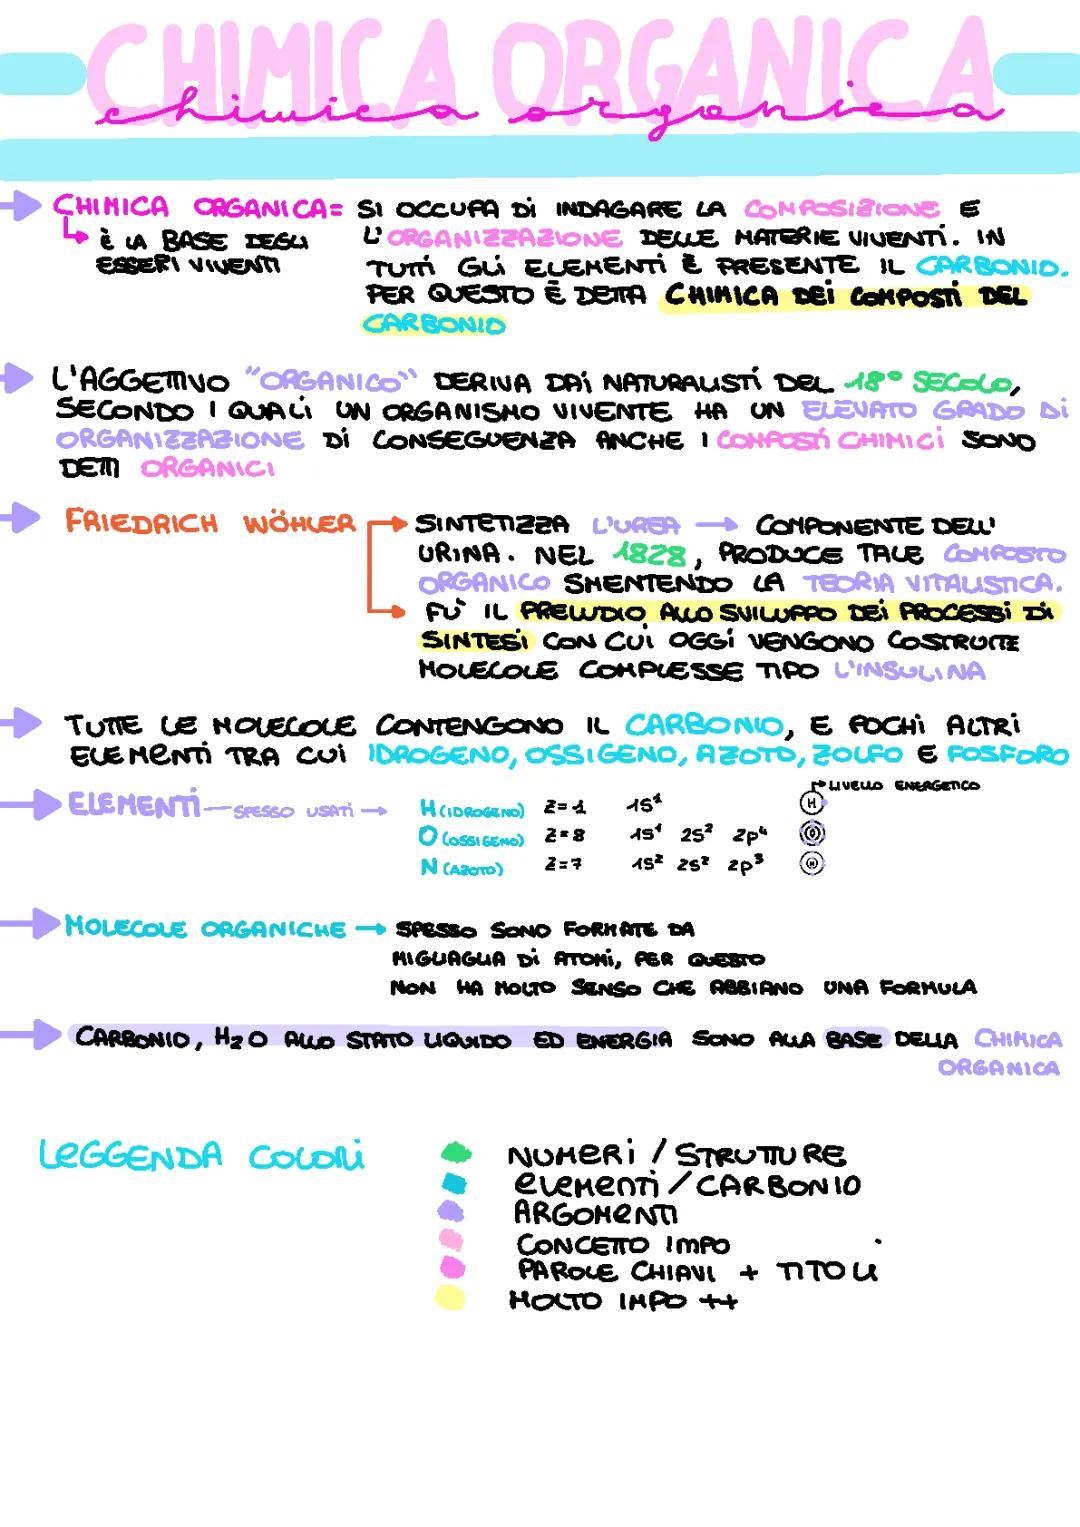 CHIMICA ORGANICA
chimica organica
CHIMICA ORGANICA= SI OCCUPA Di INDAGARE LA COMPOSIZIONE E
È LA BASE DEGLI L'ORGANIZZAZIONE DELLE MATERIE VIVENTi. IN
ESSERI VIVENTI TUTTi GLi ELEMENTi È PRESENTE IL CARBONIO.
PER QUESTO È DETTA CHIMICA DEi COMPOSTi DEL
CARBONIO
L'AGGETTIVO "ORGANICO" DERIVA DAi NATURALISTi DEL 18° SECOLO,
SECONDO I QUALi UN ORGANISMO VIVENTE HA UN ELEVATO GRADO Di
ORGANIZZAZIONE Di CONSEGUENZA ANCHE I COMPOSTi CHIMICi SONO
DETTI ORGANICI
FRIEDRICH WÖHLER → SINTETIZZA L'UREA → COMPONENTE DELL'
URINA. NEL 1828, PRODUCE TALE COMPOSTO
ORGANICO SMENTENDO LA TEORIA VITALISTICA.
FU' IL PRELUDIO ALLO SVILUPPO DEi PROCESSi Di
SINTESi CON CUI OGGi VENGONO COSTRUITE
MOLECOLE COMPLESSE TIPO L'INSULINA
TUTTE LE MOLECOLE CONTENGONO IL CARBONIO, E POCHi ALTRi
ELEMENTi TRA CUi IDROGENO, OSSIGENO, AZOTO, ZOLFO E FOSFORO
LIVELLO ENERGETICO
ELEMENTi — SPESSO USATi → H (IDROGENO) Z=1 1S¹ H
O (OSSIGENO) Z=8 1S¹ 2S² 2p⁴ O
N (AZOTO) Z=7 1S² 2S² 2p³ N
MOLECOLE ORGANICHE → SPESSO SONO FORMATE DA
MIGLIAGLIA Di ATOMi, PER QUESTO
NON HA MOLTO SENSO CHE ABBIANO UNA FORMULA
CARBONIO, H₂O ALLO STATO LIQUIDO ED ENERGIA SONO ALLA BASE DELLA CHIMICA
ORGANICA
LEGGENDA COLORi
NUMERi / STRUTTURE
ELEMENTi / CARBONIO
ARGOMENTI
CONCETTO IMPO
PAROLE CHIAVI + TITOLI
MOLTO IMPO ++